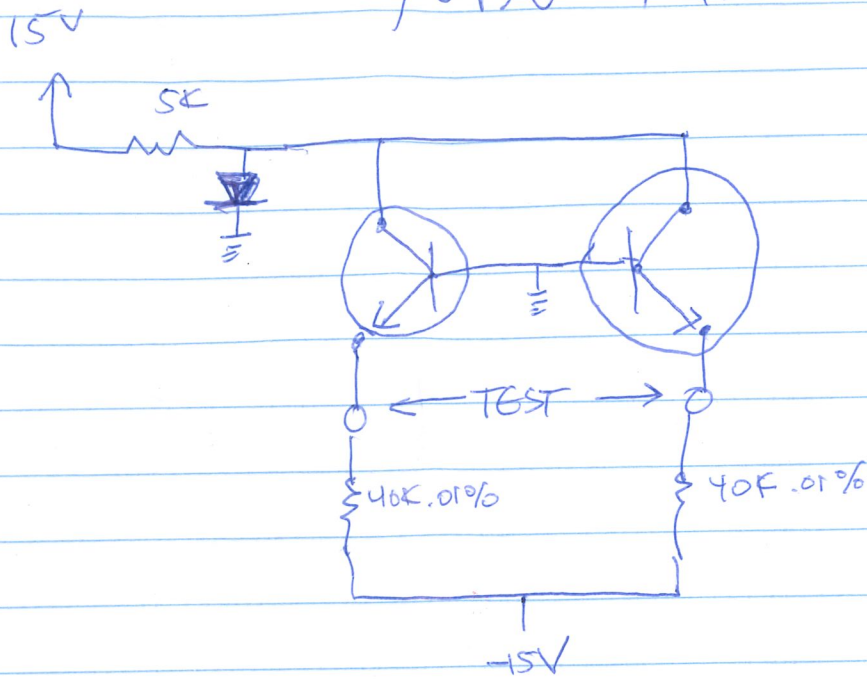 15V
5K
TEST
40K .01%
40K .01%
-15V